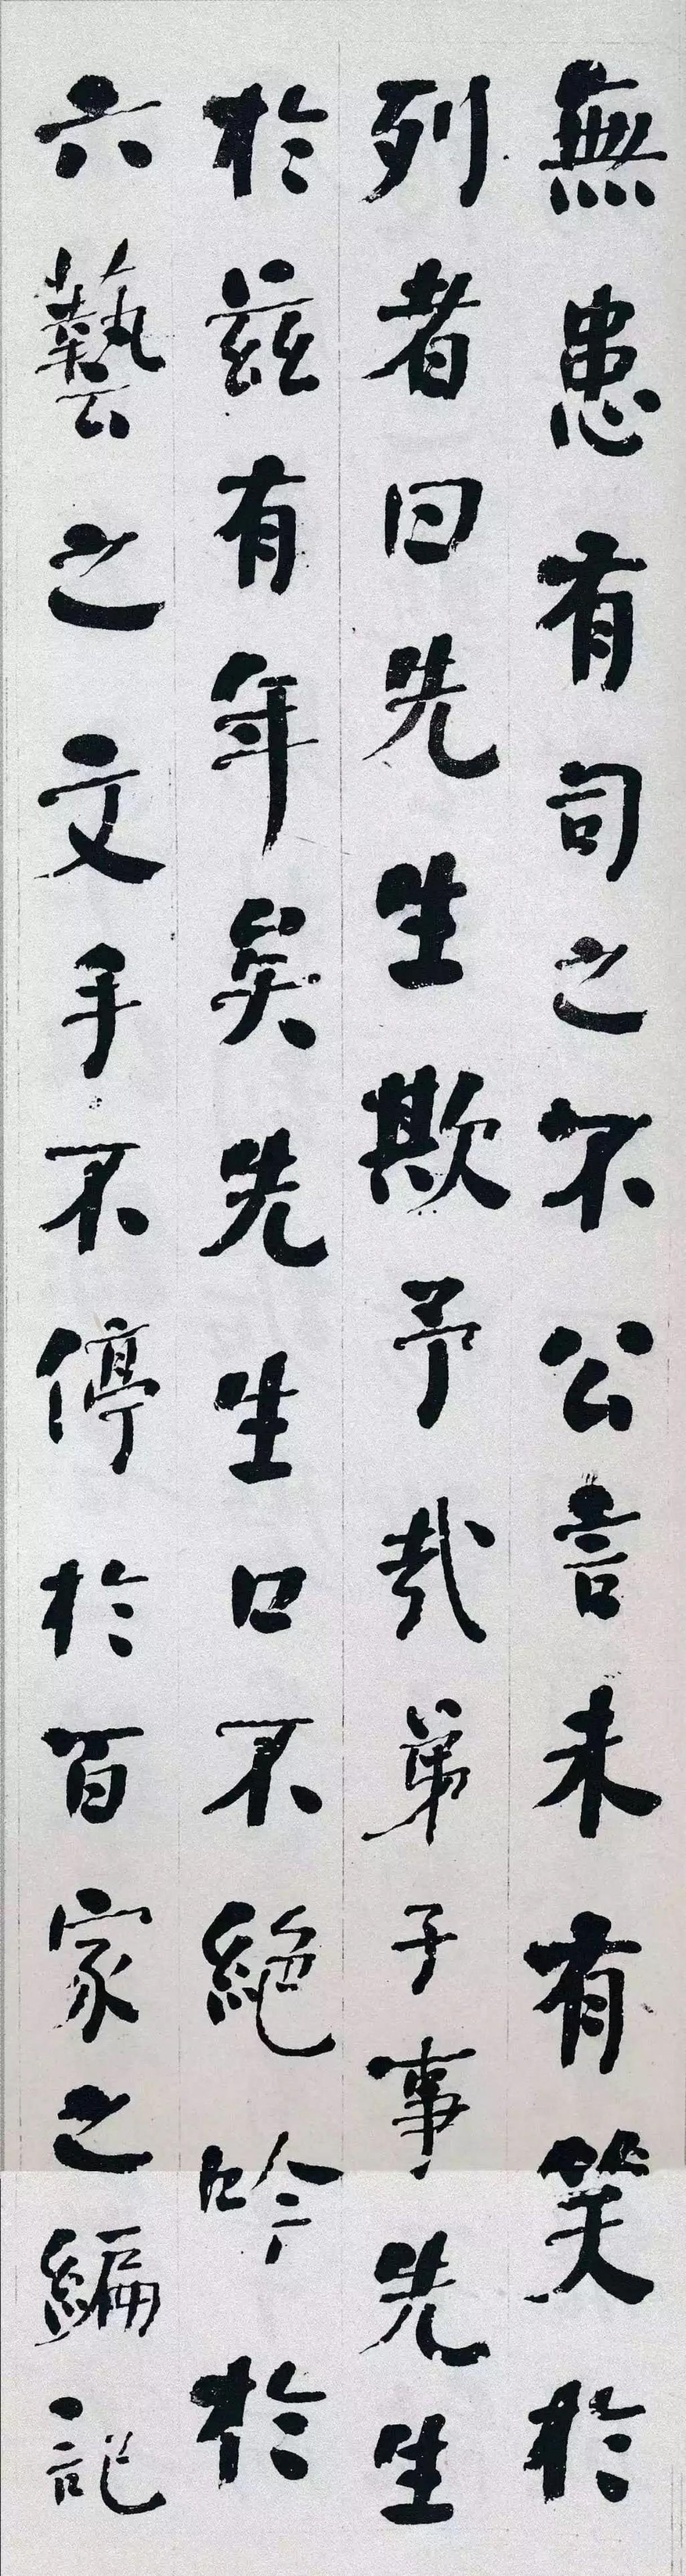 無患有司之不公言未有笑於
列者曰先生欺予哉弟子事先生
於茲有年矣先生口不絕吟於
六藝之文手不停於百家之編記